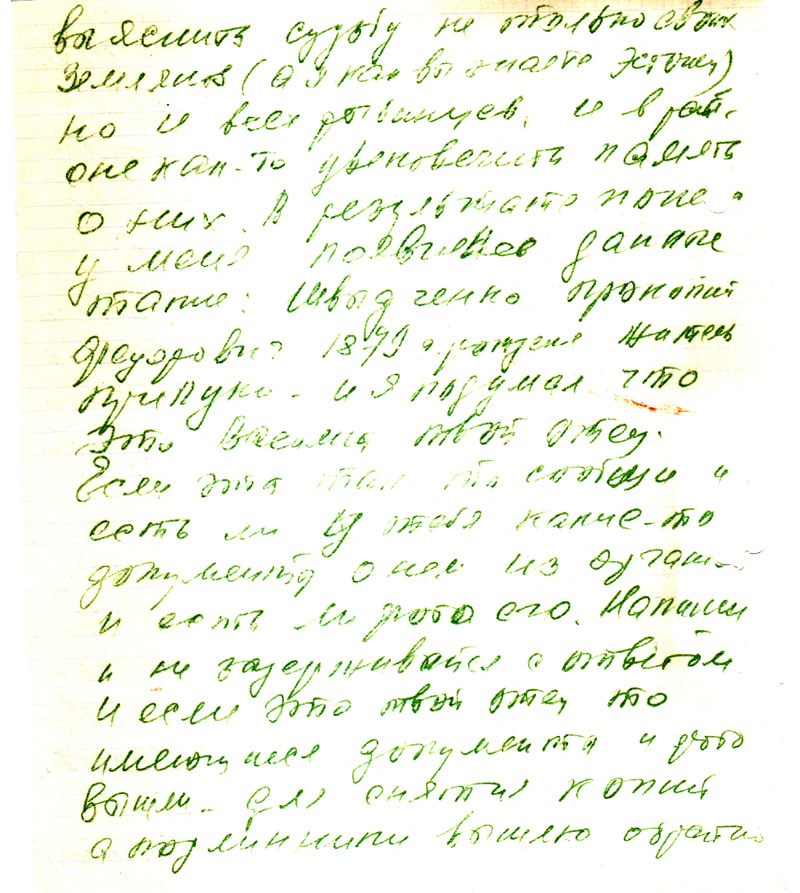 выяснить судьбу не только своих
земляков (а я как вы знаете Эстонец)
но и всех рыбинцев, и в рай-
оне как-то увековечить память
о них. В результате
у меня появились данные
такие: Швыдченко Прокопий
Федорович 1879 г. рождения житель
и я подумал что
это Василий твой отец.
Если это так то сообщи и
есть ли у тебя какие-то
документы о нем из орган-
и есть ли фото его. Напиши
и не задерживайся с ответом
и если это твой отец то
имеющиеся документы и фото
вышли - для снятия копий
а подлинники вышлю обратно